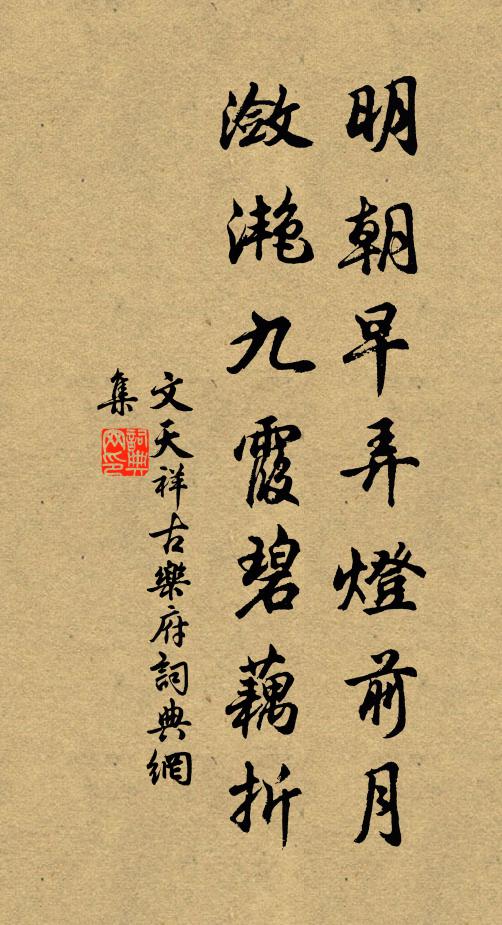 明朝早弄燈前月
瀲灧九霞碧藕折
文天祥古樂府詞典網
集
詞典網印